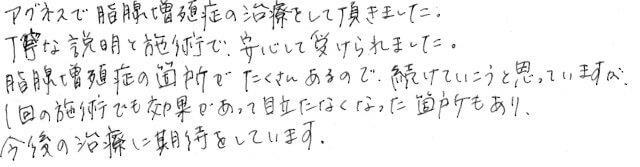 アグネスで脂腺増殖症の治療をして頂きました。
丁寧な説明と施術で、安心して受けられました。
脂腺増殖症の箇所がたくさんあるので、続けていこうと思っていますが、
1回の施術でも効果があって目立たなくなった箇所もあり、
今後の治療に期待をしています。